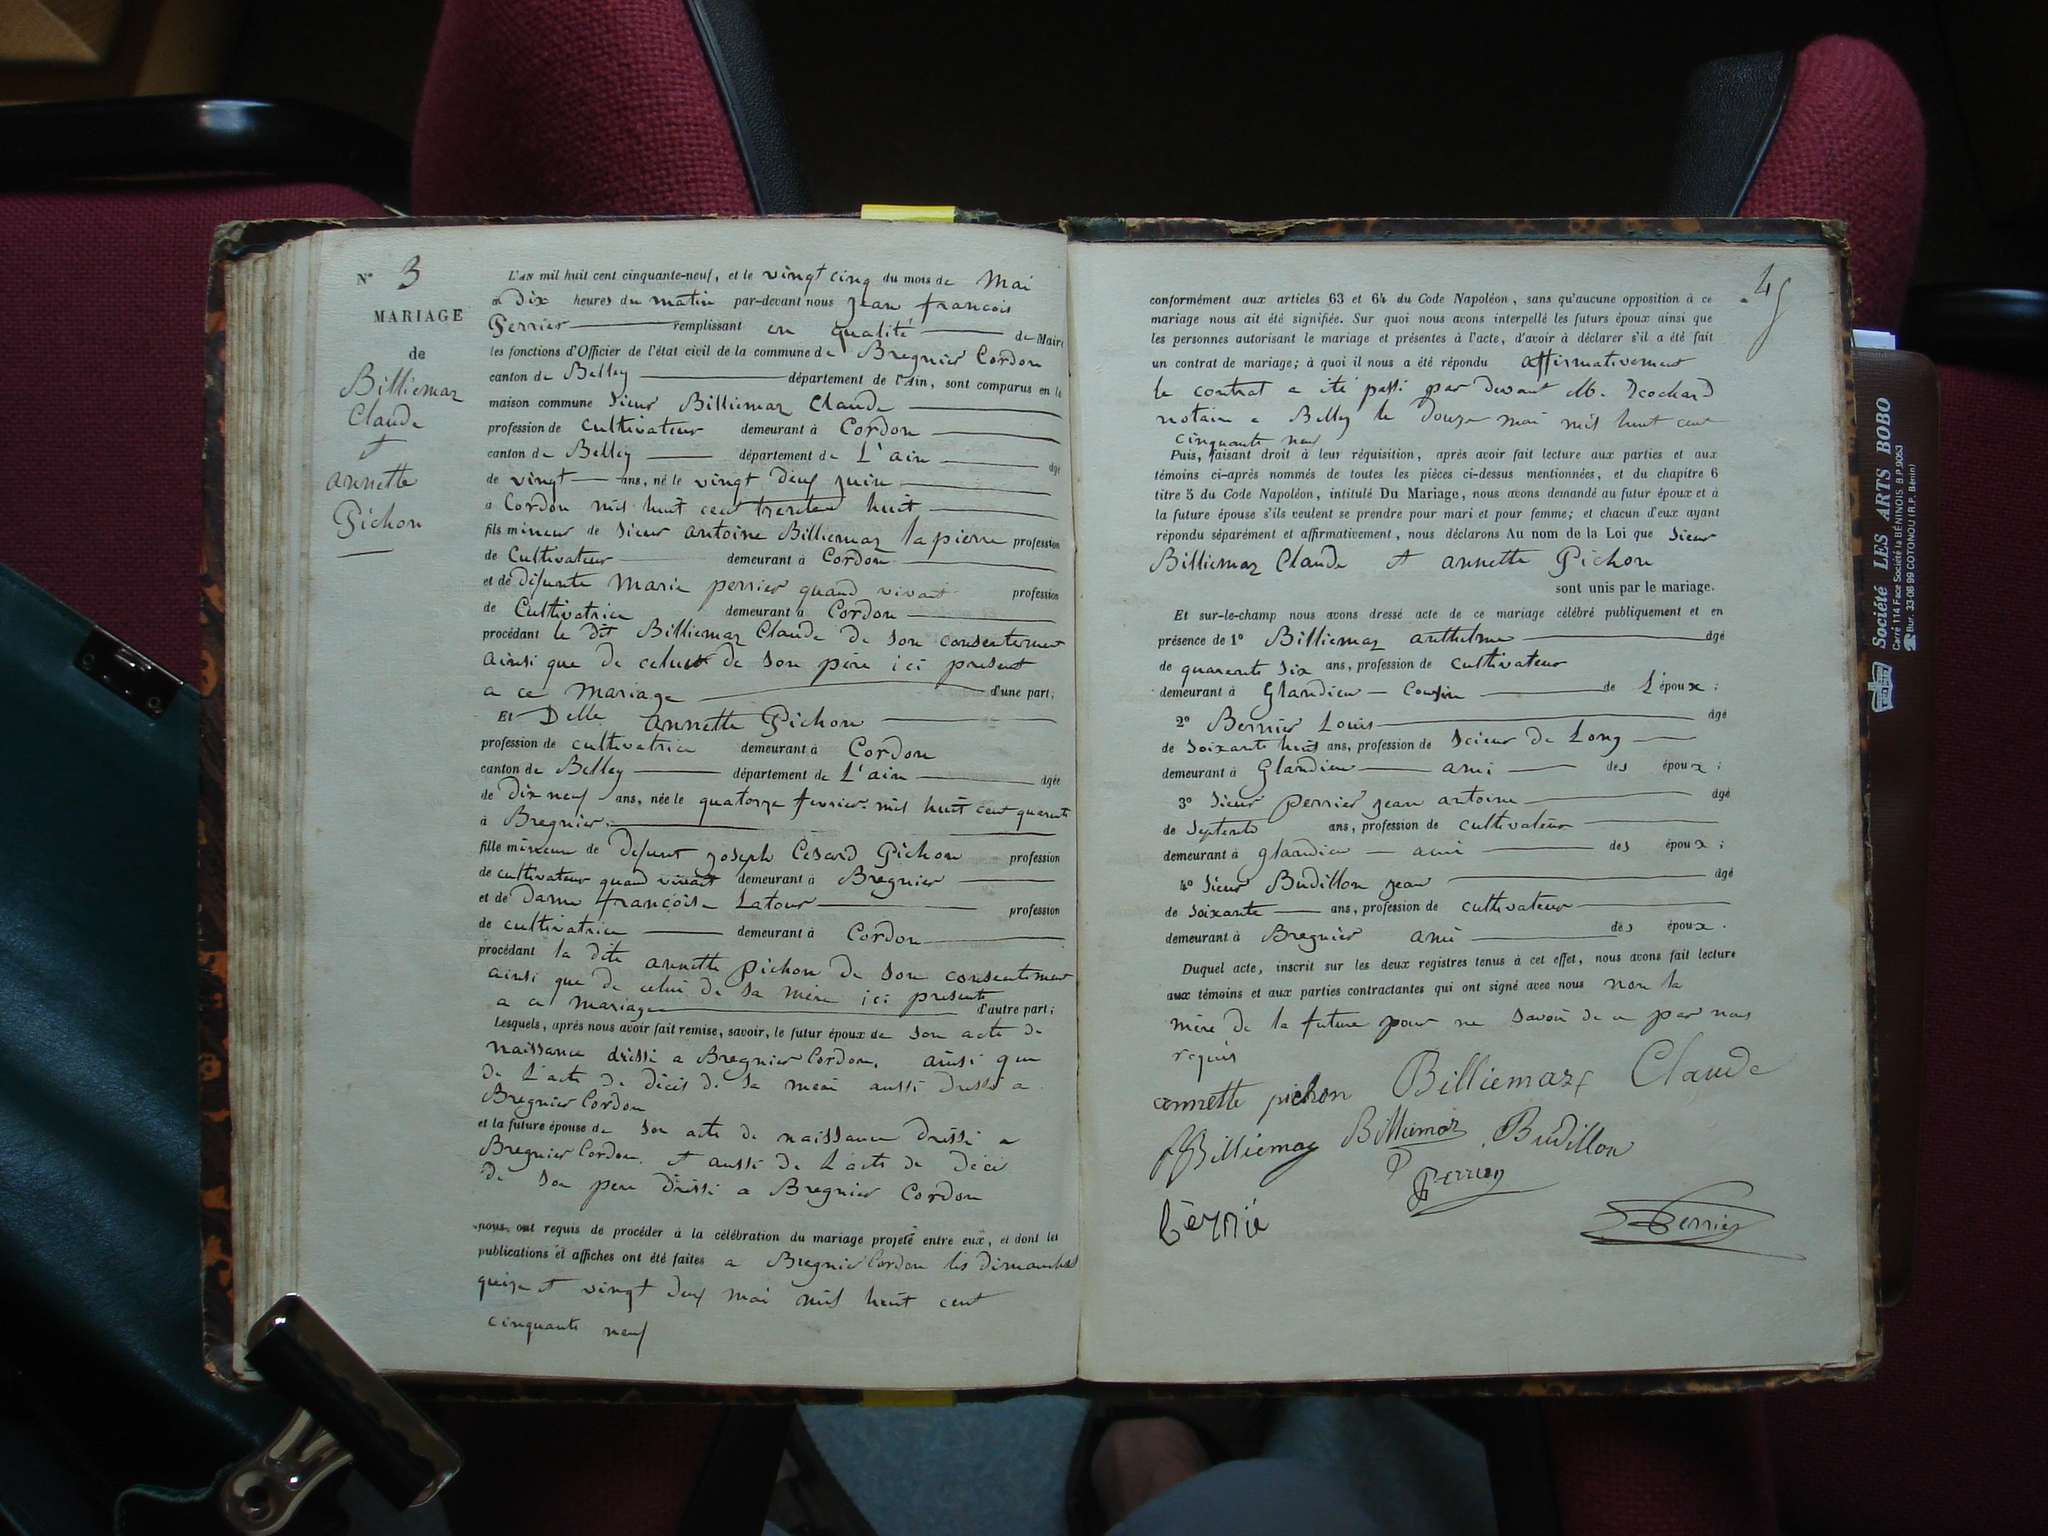 N° 3
MARIAGE
de
Billiemaz
Claude
et
annette
Pichon
L'AN mil huit cent cinquante-neuf, et le vingt cinq du mois de Mai
à Dix heures du matin par-devant nous Jean françois
Perrier remplissant en qualité de Maire
les fonctions d'Officier de l'état civil de la commune de Bregnier Cordon
canton de Belley département de l'Ain, sont comparus en la
maison commune Sieur Billiemaz Claude
profession de cultivateur demeurant à Cordon
canton de Belley département de L'ain âgé
de vingt ans, né le vingt deux juin
à Cordon mil huit cent trente huit
fils mineur de Sieur antoine Billiemaz lapierre profession
de Cultivateur demeurant à Cordon
et de défunte Marie perrier quand vivait profession
de Cultivatrice demeurant à Cordon
procédant le dit Billiemaz Claude de son consentement
ainsi que de celui de son père ici présent
a ce mariage d'une part;
Et Delle annette Pichon
profession de cultivatrice demeurant à Cordon
canton de Belley département de L'ain âgée
de Dix neuf ans, née le quatorze fevrier mil huit cent quarante
à Bregnier
fille mineure de defunt joseph Cesard Pichon profession
de cultivateur quand vivait demeurant à Bregnier
et de Dame françoise Latour profession
de cultivatrice demeurant à Cordon
procédant la dite annette Pichon de son consentement
ainsi que de celui de sa mère ici présente
a ce mariage d'autre part;
Lesquels, après nous avoir fait remise, savoir, le futur époux de son acte de
naissance dressé a Bregnier Cordon, ainsi que
de l'acte de décès de sa mère aussi dressé a
Bregnier Cordon
et la future épouse de son acte de naissance dressé a
Bregnier Cordon et aussi de l'acte de déci
de son père dressé a Bregnier Cordon
nous ont requis de procéder à la célébration du mariage projeté entre eux, et dont les
publications et affiches ont été faites a Bregnier Cordon les dimanches
quinze et vingt deux mai mil huit cent
cinquante neuf
conformément aux articles 63 et 64 du Code Napoléon, sans qu'aucune opposition à ce
mariage nous ait été signifiée. Sur quoi nous avons interpellé les futurs époux ainsi que
les personnes autorisant le mariage et présentes à l'acte, d'avoir à déclarer s'il a été fait
un contrat de mariage; à quoi il nous a été répondu affirmativement
le contrat a été passé par devant M.
notaire a Belley le Douze mai mil huit cent
cinquante neuf
Puis, faisant droit à leur réquisition, après avoir fait lecture aux parties et aux
témoins ci-après nommés de toutes les pièces ci-dessus mentionnées, et du chapitre 6
titre 5 du Code Napoléon, intitulé Du Mariage, nous avons demandé au futur époux et à
la future épouse s'ils veulent se prendre pour mari et pour femme; et chacun d'eux ayant
répondu séparément et affirmativement, nous déclarons Au nom de la Loi que Sieur
Billiemaz Claude et annette Pichon
sont unis par le mariage.
Et sur-le-champ nous avons dressé acte de ce mariage célébré publiquement et en
présence de 1° Billiemaz anthelme âgé
de quarente six ans, profession de cultivateur
demeurant à Glandieu cousin de L'époux;
2° Bernier Louis âgé
de soixante huit ans, profession de scieur de Long
demeurant à Glandieu ami des époux;
3° Sieur perrier jean antoine âgé
de septente ans, profession de cultivateur
demeurant à glandieu ami des époux;
4° Sieur Budillon jean âgé
de soixante ans, profession de cultivateur
demeurant à Bregnier ami des époux.
Duquel acte, inscrit sur les deux registres tenus à cet effet, nous avons fait lecture
aux témoins et aux parties contractantes qui ont signé avec nous non la
mère de la future pour ne savoir de ce par nous
requis
annette pichon Billiemaz Claude
Billiemaz Billiemaz Budillon
Perrier
Bernié
Perrier
Société LES ARTS BOBO
Carré 114 Face Société la BÉNINOIS B.P. 9063
Bur. 33 08 99 COTONOU (R.P. Bénin)